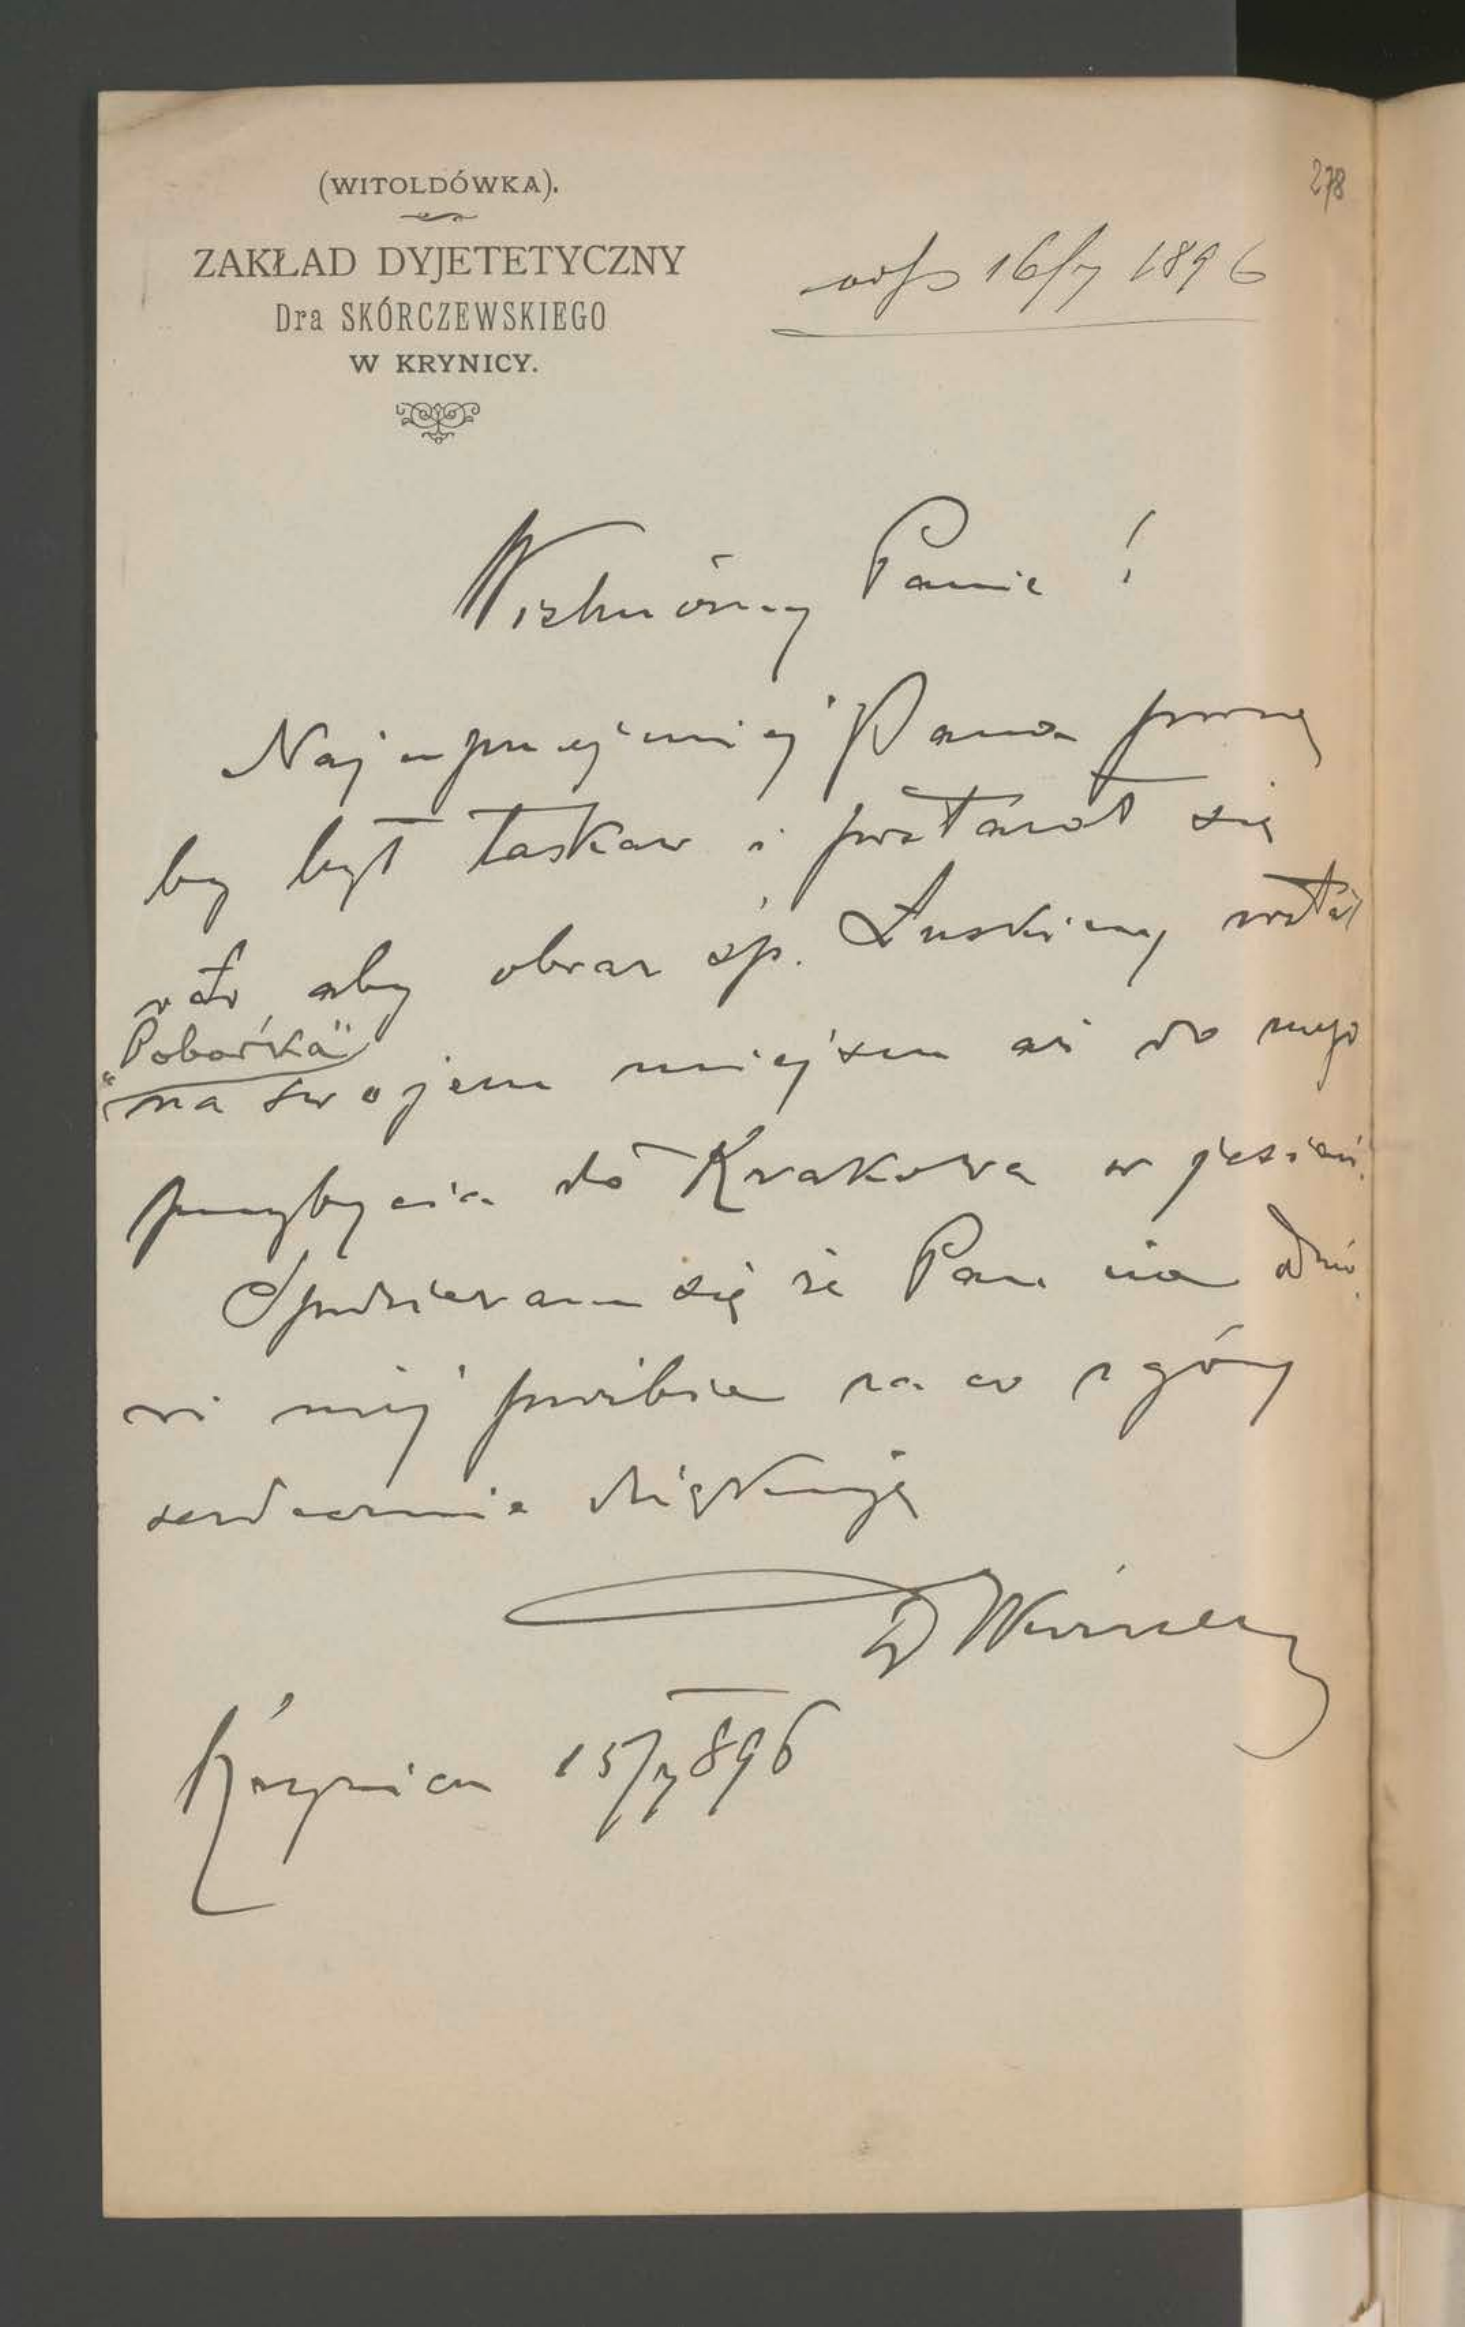 278
(WITOLDÓWKA).
ZAKŁAD DYJETETYCZNY
Dra SKÓRCZEWSKIEGO
W KRYNICY.
16/7 1896
Panie !
Najuprzejmiej Pana proszę
by był łaskaw i postarał się
o to, aby obraz śp. Łuskiny został
"Pobożka"
na swojem miejscu aż do mego
przybycia do Krakowa w jesieni.
Spodziewam się że Pan nie odmó
wi mej prośbie za co z góry
serdecznie dziękuję
Krynica 15/7 896